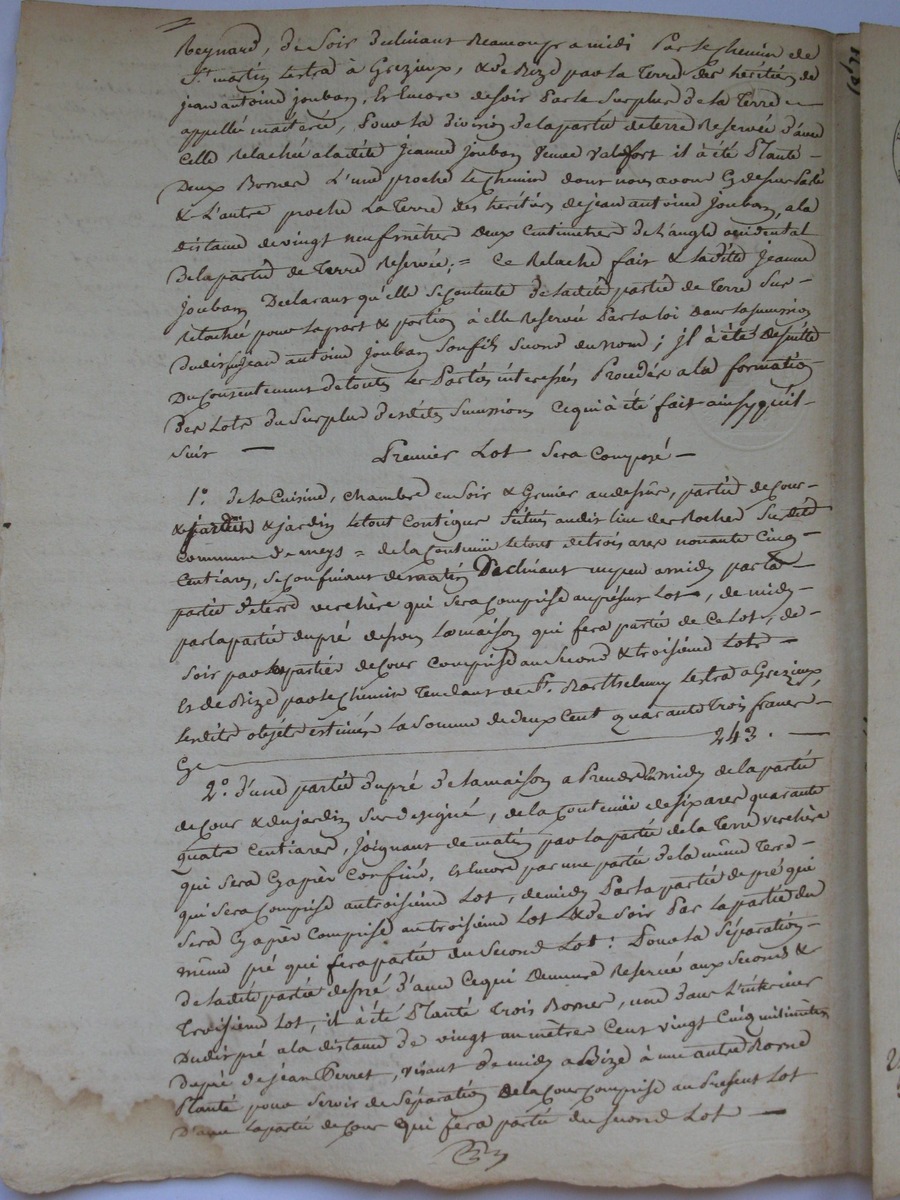 Reynard, de soir declinant beaucoup a midi par le chemin de
St martin Lestra à Grezieux, & de Bize par la Terre des heritiers de
jean antoine jouban, Et Encore de soir par le surplus de la Terre
appellé materée, pour la division de la partie de terre Reservée d'avec
celle relachée a la dite jeanne jouban veuve valfort il à été Planté
Deux Bornes L'une proche le chemin dont nous avons cy dessus parlé
& L'autre proche la Terre des heritiers de jean antoine jouban, a la
distance de vingt neuf mètres deux centimetres de L'angle occidental
de la partie de Terre Reservée; = ce relache fait & la dite jeanne
jouban declarant qu'elle se contente de la dite partie de Terre sus
relachée pour la part & portion à elle Reservée par la loi dans la succession
dudit jean antoine jouban son fils second du nom; il à été de suitte
Du consentement de toutes les parties interessées Procédé a la formation
des Lots du surplus desdites successions ce qui à été fait ainsy qu'il
suit —
Premier Lot sera composé —
1°. de la cuisine, chambre en soir & Grenier au dessus, partie de cour
& jardin le tout contigue situés audit lieu des Rocher susdite
commune de meys = de la contenüe le tout de trois ares nonante cinq
centiares, se confinant de matin Declinant un peu a midy par la
partie de terre verchère qui sera comprise au présent Lot, de midy
par la partie du pré dessous la maison qui fera partie de ce Lot, de
soir par la partie de cour comprise au second & troisième Lots
Et de Bize par le chemin Tendant de St. Barthelemy Lestra a Grezieux
lesdits objets estimés la somme de deux cent quarante Trois francs
Cy 243. —
2°. d'une partie du pré de la maison a Prendre en midy de la partie
de cour & du jardin sus designé, de la contenüe de six ares quarante
quatre centiares, joignant de matin par la partie de la Terre verchère
qui sera cy après confiné, Et Encore par une partie de la même Terre
qui sera comprise au troisième Lot, de midy par la partie de pré qui
sera cy après comprise au troisième Lot & de soir par la partie du
même pré qui fera partie du second Lot: Pour la séparation
de la dite partie de pré d'avec ce qui demeure Reservé aux second &
Troisième Lot, il à été Planté Trois Bornes, une dans L'intérieur
dudit pré a la distance de vingt un mètres cent vingt cinq milimètres
du pré de jean Perret, visant de midy a Bize à une autre Borne
Planté pour servir de séparation de la cour comprise au Present Lot
d'avec la partie de cour qui fera partie du second Lot —